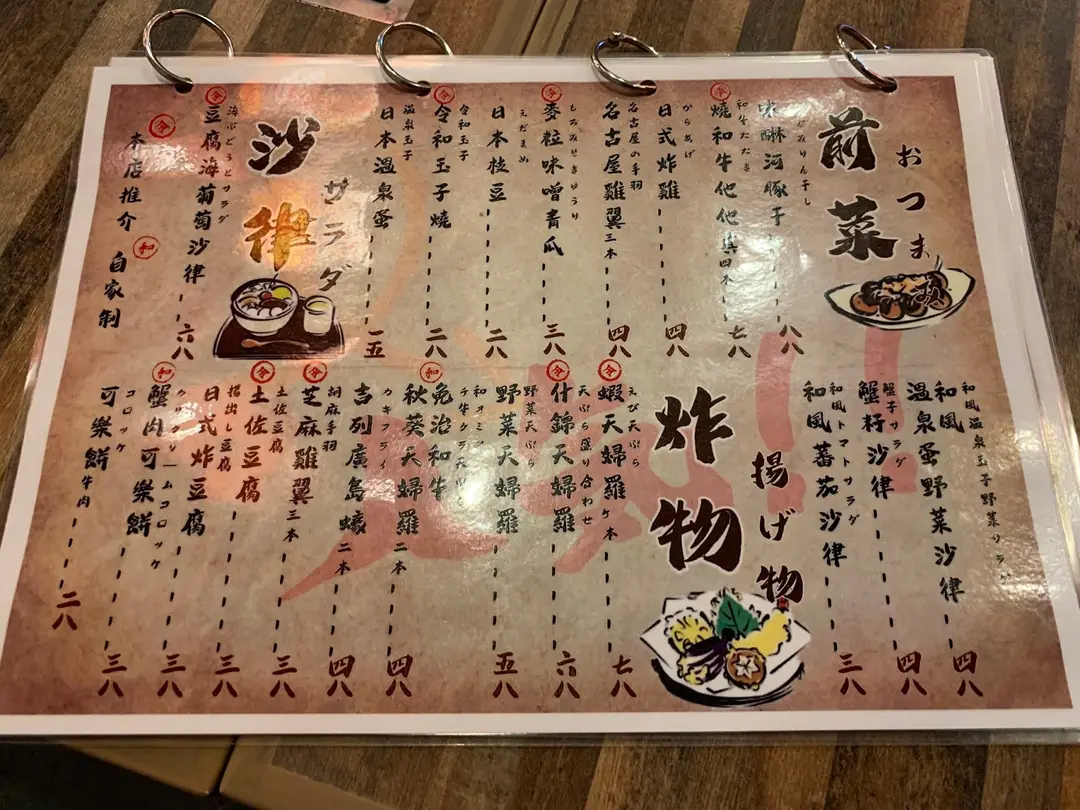 おつま
前菜
味醂河豚干
八八
和牛たたき
燒和牛他他
四本
七八
からあげ
日式炸雞
四八
名古屋の手羽
名古屋雞翼三本
四八
麥粒味噌青瓜
三八
えだまめ
日本枝豆
二八
令和玉子
令和玉子燒
二八
温泉玉子
日本溫泉蛋
一五
サラダ
沙律
海ぶどうとサラダ
豆腐海葡萄沙律
六八
令 本店推介
和 自家制
和風温泉玉子野菜サラダ
和風溫泉蛋野菜沙律
四八
蟹子サラダ
蟹籽沙律
四八
和風トマトサラダ
和風蕃茄沙律
三八
揚げ物
炸物
えび天ぷら
蝦天婦羅
七八
天ぷら盛り合わせ
什錦天婦羅
六八
野菜天ぷら
野菜天婦羅
五八
免治和牛秋葵天婦羅二本
四八
カキフライ
吉列廣島蠔二本
四八
胡麻手羽
芝麻雞翼三本
三八
土佐豆腐
土佐豆腐
三八
揚出し豆腐
日式炸豆腐
三八
蟹肉可樂餅
三八
コロッケ
可樂餅牛肉
二八